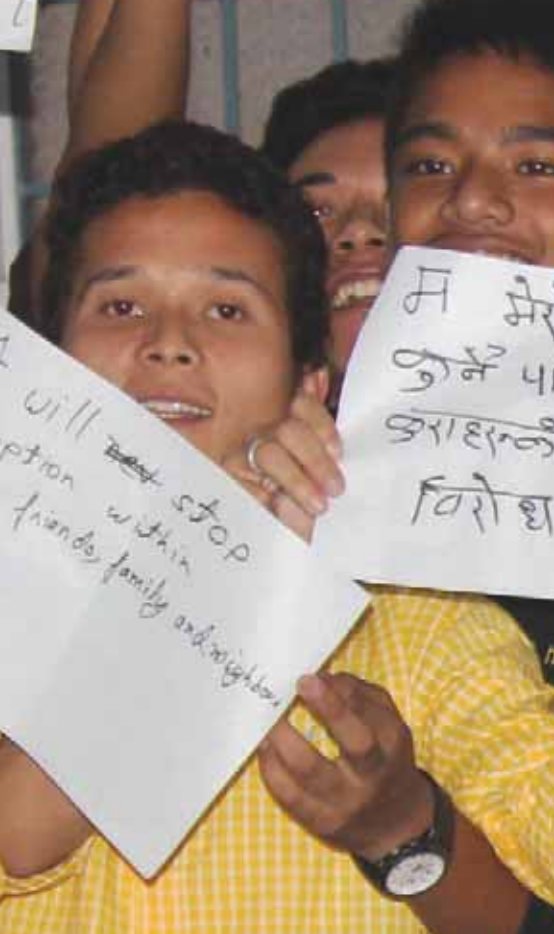 I will stop
ption within
friends, family and neighbour
म मेर
कुनै पा
कुराहरुको
विरोध